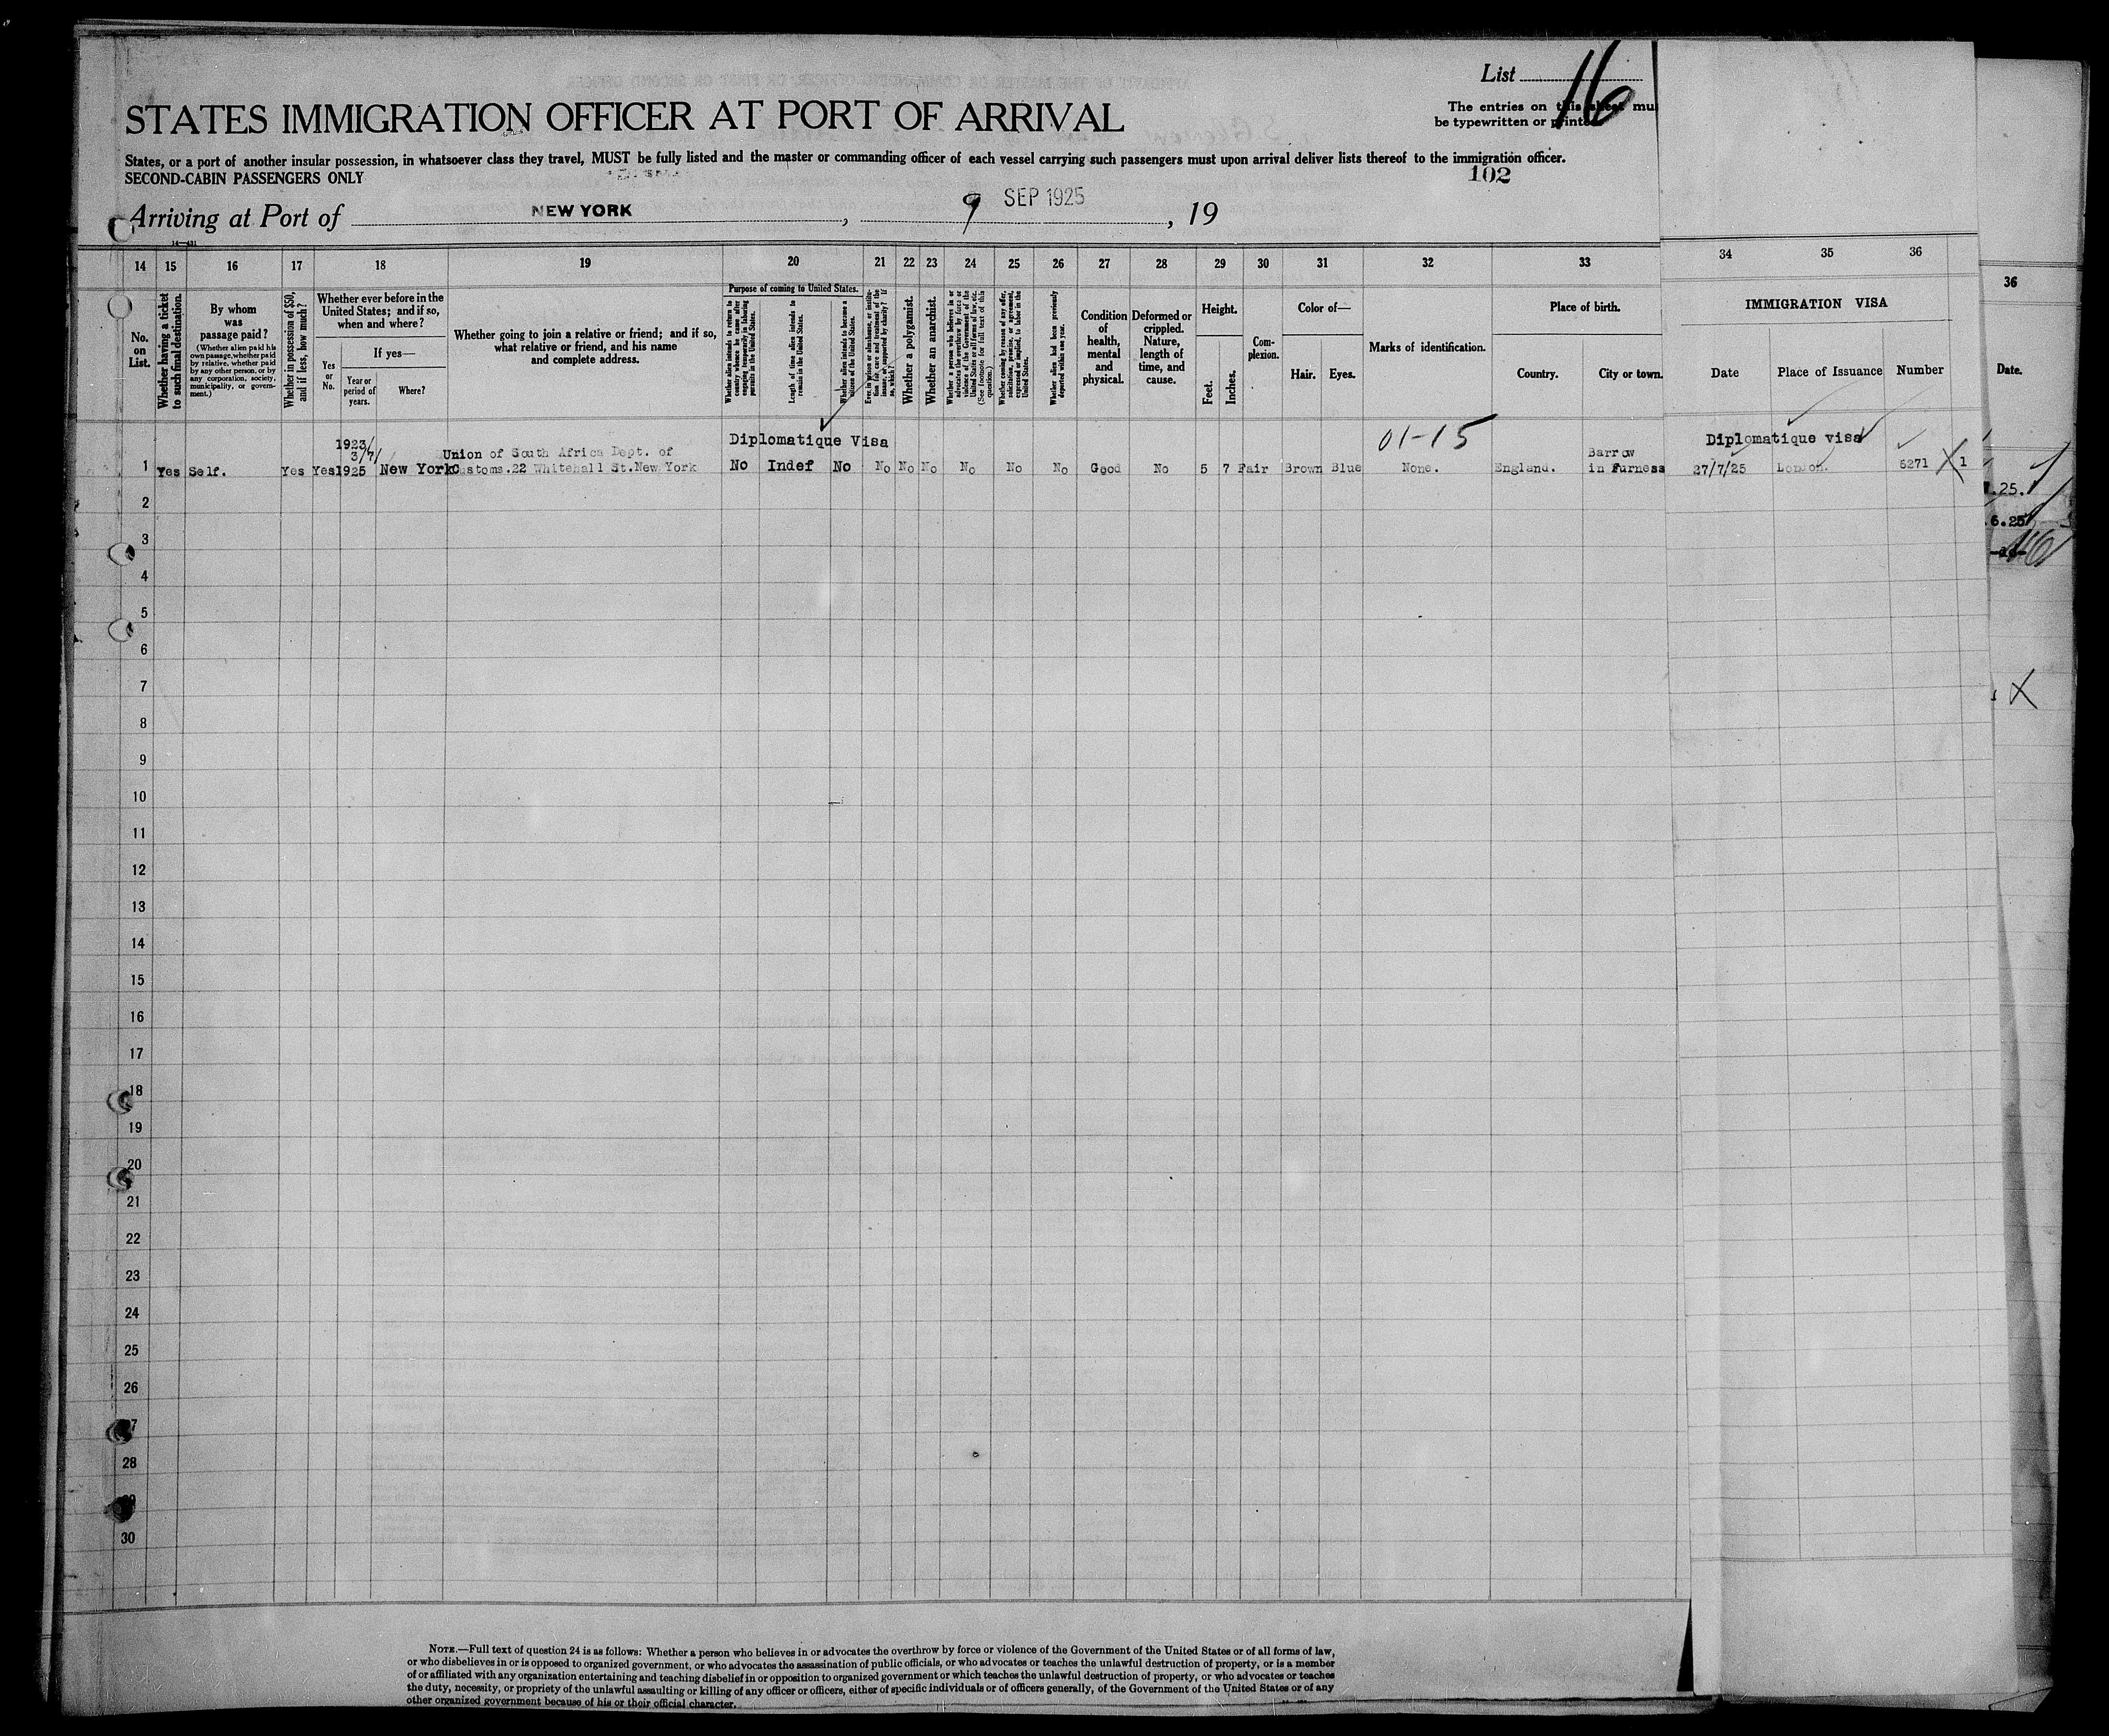 List 16
The entries on this sheet mu
be typewritten or printed.
STATES IMMIGRATION OFFICER AT PORT OF ARRIVAL
States, or a port of another insular possession, in whatsoever class they travel, MUST be fully listed and the master or commanding officer of each vessel carrying such passengers must upon arrival deliver lists thereof to the immigration officer.
SECOND-CABIN PASSENGERS ONLY
102
Arriving at Port of NEW YORK, 9 SEP 1925, 19
14 15 16 17 18 19 20 21 22 23 24 25 26 27 28 29 30 31 32 33 34 35 36
36
No. on List.
Whether having a ticket to such final destination.
By whom was passage paid?
(Whether alien paid his own passage, whether paid by relative, whether paid by any other person, or by any corporation, society, municipality, or government.)
Whether in possession of $50, and if less, how much?
Whether ever before in the United States; and if so, when and where?
Yes or No.
If yes—
Year or period of years.
Where?
Whether going to join a relative or friend; and if so, what relative or friend, and his name and complete address.
Purpose of coming to United States.
Whether alien intends to return to country whence he came after engaging temporarily in laboring pursuits in the United States.
Length of time alien intends to remain in the United States.
Whether alien intends to become a citizen of the United States.
Whether a polygamist.
Whether an anarchist.
Whether coming by reason of any offer, solicitation, promise, or agreement, expressed or implied, to labor in the United States.
Whether alien had been previously deported within one year.
Condition of health, mental and physical.
Deformed or crippled. Nature, length of time, and cause.
Height.
Feet.
Inches.
Complexion.
Color of—
Hair.
Eyes.
Marks of identification.
Place of birth.
Country.
City or town.
IMMIGRATION VISA
Date
Place of Issuance
Number
Date.
1923/
3/7/
Union of South Africa Dept. of
Diplomatique Visa
01-15
Barrow
Diplomatique visa
1 Yes Self. Yes Yes 1925 New York Customs.22 Whitehall St.New York No Indef No No No No No No No Good No 5 7 Fair Brown Blue None. England. in Furness 27/7/25 London. 5271 X 1
.25.
6.25
2
3
4
5
6
7
X
8
9
10
11
12
13
14
15
16
17
18
19
20
21
22
23
24
25
26
27
28
29
30
NOTE.—Full text of question 24 is as follows: Whether a person who believes in or advocates the overthrow by force or violence of the Government of the United States or of all forms of law,
or who disbelieves in or is opposed to organized government, or who advocates the assassination of public officials, or who advocates or teaches the unlawful destruction of property, or is a member
of or affiliated with any organization entertaining and teaching disbelief in or opposition to organized government or which teaches the unlawful destruction of property, or who advocates or teaches
the duty, necessity, or propriety of the unlawful assaulting or killing of any officer or officers, either of specific individuals or of officers generally, of the Government of the United States or of any
other organized government because of his or their official character.